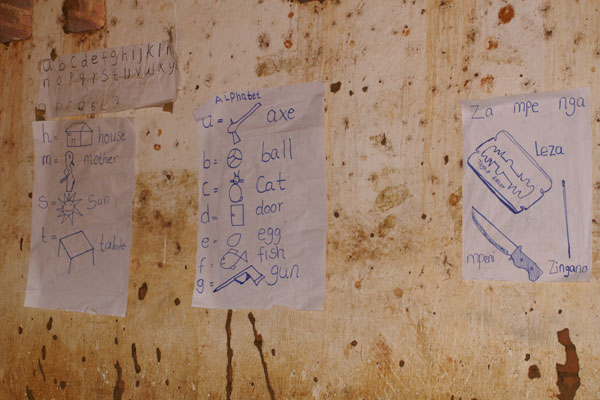 a b c d e f g h i j k l n
n o p q r s t u v w x y
h = house
m = mother
s = sun
t = table
ALphabet
a = axe
b = ball
c = cat
d = door
e = egg
f = fish
g = gun
Za mpe nga
Leza
mpeni
Zingano